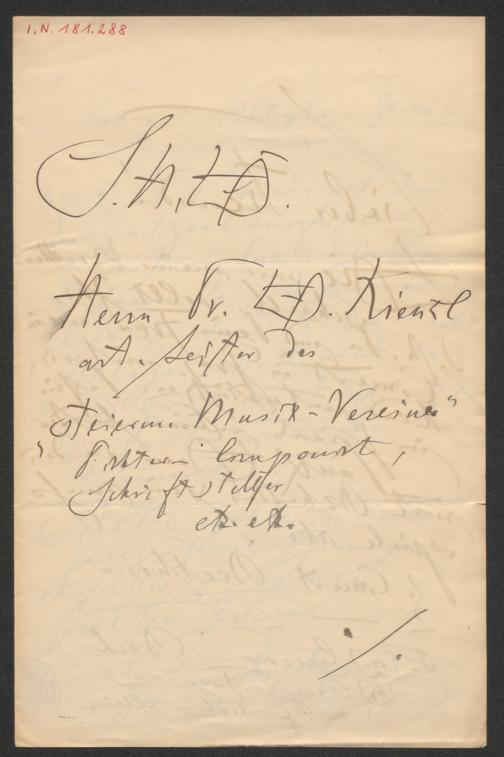 I.N. 181.288
S. H.
Herrn Dr. W. Kienzl
art. Leiter des
steierm. Musik-Vereines"
Componist,
Schriftsteller
etc. etc.
./.